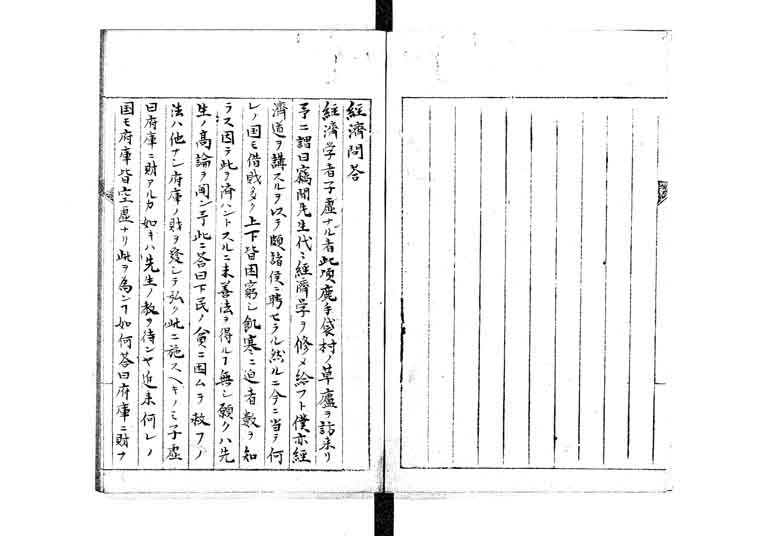 經濟問答
經濟学者子虚ナル者此頃鹿手袋村ノ草廬ヲ訪来リ
予ニ謂曰竊聞先生代ミ經濟学ヲ修メ給フト僕亦經
濟道ヲ講スルヲ以テ頗諸侯ニ聘セラル然ルニ今ニ当テ何
レノ国モ借財多ク上下皆困窮シ飢寒ニ迫者数ヲ知
ラス因テ此ヲ済ハントスルニ未善法ヲ得ルヿ無シ願クハ先
生ノ高論ヲ聞ン予此ニ答曰下民ノ貧ニ困ムヲ救フノ
法ハ他ナシ府庫ノ財ヲ發シテ弘ク此ニ施スヘキノミ子虚
曰府庫ニ財アルカ如キハ先生ノ教ヲ待ンヤ近来何レノ
国モ府庫皆空虚ナリ此ヲ為ンヿ如何答曰府庫ニ財ヲ